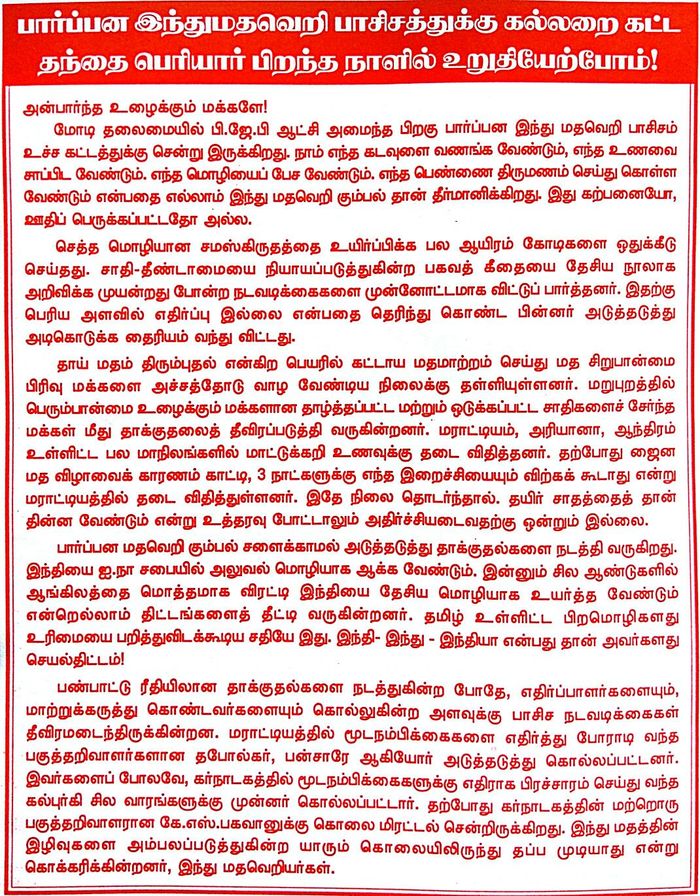 பார்ப்பன இந்துமதவெறி பாசிசத்துக்கு கல்லறை கட்ட
தந்தை பெரியார் பிறந்த நாளில் உறுதியேற்போம்!
அன்பார்ந்த உழைக்கும் மக்களே!
மோடி தலைமையில் பி.ஜே.பி ஆட்சி அமைந்த பிறகு பார்ப்பன இந்து மதவெறி பாசிசம்
உச்ச கட்டத்துக்கு சென்று இருக்கிறது. நாம் எந்த கடவுளை வணங்க வேண்டும், எந்த உணவை
சாப்பிட வேண்டும். எந்த மொழியைப் பேச வேண்டும். எந்த பெண்ணை திருமணம் செய்து கொள்ள
வேண்டும் என்பதை எல்லாம் இந்து மதவெறி கும்பல் தான் தீர்மானிக்கிறது. இது கற்பனையோ,
ஊதிப் பெருக்கப்பட்டதோ அல்ல.
செத்த மொழியான சமஸ்கிருதத்தை உயிர்ப்பிக்க பல ஆயிரம் கோடிகளை ஒதுக்கீடு
செய்தது. சாதி-தீண்டாமையை நியாயப்படுத்துகின்ற பகவத் கீதையை தேசிய நூலாக
அறிவிக்க முயன்றது போன்ற நடவடிக்கைகளை முன்னோட்டமாக விட்டுப் பார்த்தனர். இதற்கு
பெரிய அளவில் எதிர்ப்பு இல்லை என்பதை தெரிந்து கொண்ட பின்னர் அடுத்தடுத்து
அடிகொடுக்க தைரியம் வந்து விட்டது.
தாய் மதம் திரும்புதல் என்கிற பெயரில் கட்டாய மதமாற்றம் செய்து மத சிறுபான்மை
பிரிவு மக்களை அச்சத்தோடு வாழ வேண்டிய நிலைக்கு தள்ளியுள்ளனர். மறுபுறத்தில்
பெரும்பான்மை உழைக்கும் மக்களான தாழ்த்தப்பட்ட மற்றும் ஒடுக்கப்பட்ட சாதிகளைச் சேர்ந்த
மக்கள் மீது தாக்குதலைத் தீவிரப்படுத்தி வருகின்றனர். மராட்டியம், அரியானா, ஆந்திரம்
உள்ளிட்ட பல மாநிலங்களில் மாட்டுக்கறி உணவுக்கு தடை விதித்தனர். தற்போது ஜைன
மத விழாவைக் காரணம் காட்டி, 3 நாட்களுக்கு எந்த இறைச்சியையும் விற்கக் கூடாது என்று
மராட்டியத்தில் தடை விதித்துள்ளனர். இதே நிலை தொடர்ந்தால். தயிர் சாதத்தைத் தான்
தின்ன வேண்டும் என்று உத்தரவு போட்டாலும் அதிர்ச்சியடைவதற்கு ஒன்றும் இல்லை.
பார்ப்பன மதவெறி கும்பல் சளைக்காமல் அடுத்தடுத்து தாக்குதல்களை நடத்தி வருகிறது.
இந்தியை ஐ.நா சபையில் அலுவல் மொழியாக ஆக்க வேண்டும். இன்னும் சில ஆண்டுகளில்
ஆங்கிலத்தை மொத்தமாக விரட்டி இந்தியை தேசிய மொழியாக உயர்த்த வேண்டும்
என்றெல்லாம் திட்டங்களைத் தீட்டி வருகின்றனர். தமிழ் உள்ளிட்ட பிறமொழிகளது
உரிமையை பறித்துவிடக்கூடிய சதியே இது. இந்தி- இந்து - இந்தியா என்பது தான் அவர்களது
செயல்திட்டம்!
பண்பாட்டு ரீதியிலான தாக்குதல்களை நடத்துகின்ற போதே, எதிர்ப்பாளர்களையும்,
மாற்றுக்கருத்து கொண்டவர்களையும் கொல்லுகின்ற அளவுக்கு பாசிச நடவடிக்கைகள்
தீவிரமடைந்திருக்கின்றன. மராட்டியத்தில் மூடநம்பிக்கைகளை எதிர்த்து போராடி வந்த
பகுத்தறிவாளர்களான தபோல்கர், பன்சாரே ஆகியோர் அடுத்தடுத்து கொல்லப்பட்டனர்.
இவர்களைப் போலவே, கர்நாடகத்தில் மூடநம்பிக்கைகளுக்கு எதிராக பிரச்சாரம் செய்து வந்த
கல்புர்கி சில வாரங்களுக்கு முன்னர் கொல்லப்பட்டார். தற்போது கர்நாடகத்தின் மற்றொரு
பகுத்தறிவாளரான கே.எஸ்.பகவானுக்கு கொலை மிரட்டல் சென்றிருக்கிறது. இந்து மதத்தின்
இழிவுகளை அம்பலப்படுத்துகின்ற யாரும் கொலையிலிருந்து தப்ப முடியாது என்று
கொக்கரிக்கின்றனர், இந்து மதவெறியர்கள்.